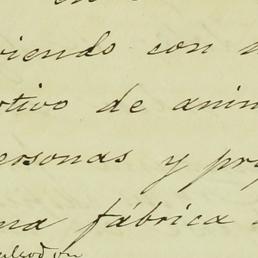 en
viendo con
rtivo de anim
ersonas y pro
na fábrica